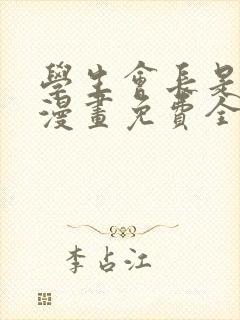 學生會長是
漫畫免費全
李占江